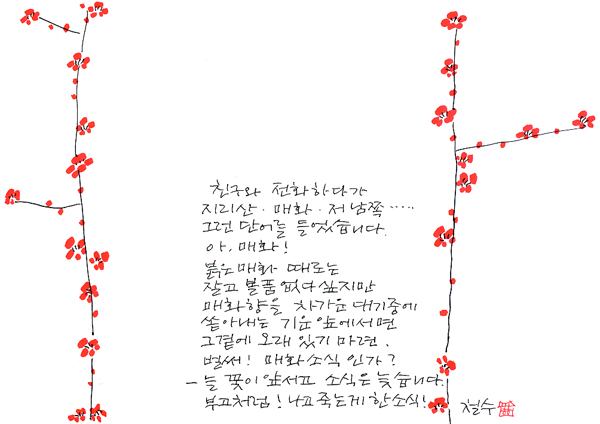 친구와 전화하다가
지리산 · 매화 · 저 남쪽 ·····
그런 단어를 들었습니다.
아, 매화!
붉은 매화 때로는
잘고 볼품없다 싶지만
매화향을 차가운 대기중에
쏟아내는 기운 앞에서면
그곁에 오래 있기 마련.
벌써! 매화소식인가?
- 늘 꽃이 앞서고 소식은 늦습니다.
부고처럼! 나고 죽는게 한소식!
철수